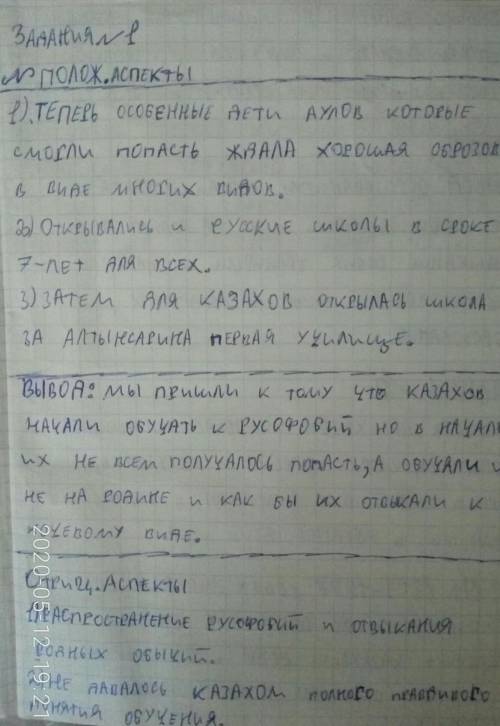 ЗАДАНИЯ №1
№ ПОЛОЖ.АСПЕКТЫ
1).ТЕПЕРЬ ОСОБЕННЫЕ ДЕТИ АУЛОВ КОТОРЫЕ
СМОГЛИ ПОПАСТЬ ЖДАЛА ХОРОШАЯ ОБРОЗОВ
В ВИДЕ МНОГИХ ВИДОВ.
2) ОТКРЫВАЛИСЬ И РУССКИЕ ШКОЛЫ В СРОКЕ
7-ЛЕТ ДЛЯ ВСЕХ.
3) ЗАТЕМ ДЛЯ КАЗАХОВ ОТКРЫЛАСЬ ШКОЛА
ЗА АЛТЫНСАРИНА ПЕРВАЯ УЧИЛИЩЕ.
ВЫВОД: МЫ ПРИШЛИ К ТОМУ ЧТО КАЗАХОВ
НАЧАЛИ ОБУЧАТЬ К РУСОФОБИЙ НО В НАЧАЛЕ
ИХ НЕ ВСЕМ ПОЛУЧАЛОСЬ ПОПАСТЬ, А ОБУЧАЛИ И
НЕ НА РОДИНЕ И КАК БЫ ИХ ОТВЫКАЛИ К
ВИДЕ.
ОТРИЦ. АСПЕКТЫ
1)РАСПРОСТРАНЕНИЕ РУСОФОБИЙ И ОТВЫКАНИЯ
РОДНЫХ ОБЫЧИЙ.
2) НЕ ДАВАЛОСЬ КАЗАХОМ ПОЛНОГО ПРАВДИВОГО
ПОНЯТИЯ ОБУЧЕНИЯ.
2020/05/12 19:21